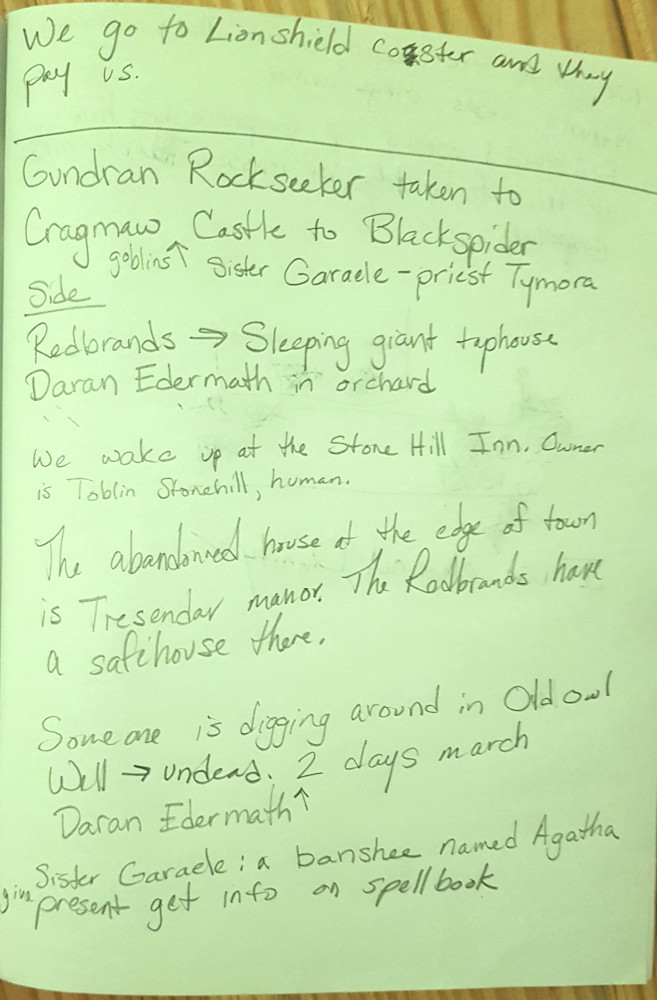 We go to Lionshield Coaster and they
pay us.
Gundran Rockseeker taken to
Cragmaw Castle to Blackspider
goblins↑ Sister Garaele - priest Tymora
Side
Redbrands → Sleeping giant taphouse
Daran Edermath in orchard
We wake up at the Stone Hill Inn. Owner
is Toblin Stonehill, human.
The abandonned house at the edge of town
is Tresendar manor. The Redbrands have
a safehouse there.
Someone is digging around in Old owl
Well → undead. 2 days march
Daran Edermath↑
Sister Garaele: a banshee named Agatha
give present get info on spellbook